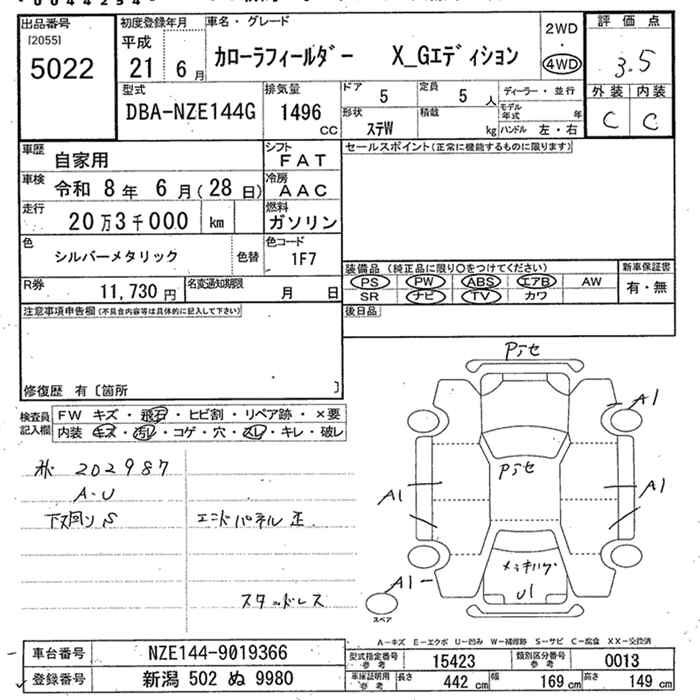 出品番号
[2055]
5022
初度登録年月
平成
21 6月
車名・グレード
カローラフィールダー X_Gエディション
2WD
・
4WD
評価点
3.5
外装 内装
C C
型式
DBA-NZE144G
排気量
1496
cc
ドア 5
定員 5 人
形状 ステW
積載 kg
ディーラー・並行
モデル年式 年
ハンドル 左・右
車歴 自家用
シフト FAT
車検 令和 8年 6月(28日)
冷房 AAC
走行 20万3千000 km
燃料 ガソリン
色 シルバーメタリック 色替
色コード 1F7
R券 11,730円
名変通知期限 月 日
セールスポイント(正常に機能するものに限ります)
装備品(純正品に限り○をつけてください)
新車保証書
有・無
PS PW ABS エアB AW
SR ナビ TV カワ
後日品
注意事項申告欄(不具合内容等は具体的に記入して下さい)
修復歴 有〔箇所 〕
検査員記入欄
FW キズ・飛石・ヒビ割・リペア跡・×要
内装 キズ・汚レ・コゲ・穴・スレ・キレ・破レ
202987
A-U
S
エンドパネル 歪
スタッドレス
A1
A1
A1
A1
U1
スペア
A-キズ E-エクボ U-凹み W-補修跡 S-サビ C-腐食 XX-交換済
車台番号 NZE144-9019366
登録番号 新潟 502 ぬ 9980
型式指定番号参考 15423
類別区分番号参考 0013
車庫証明用参考
長さ 442 cm
幅 169 cm
高さ 149 cm